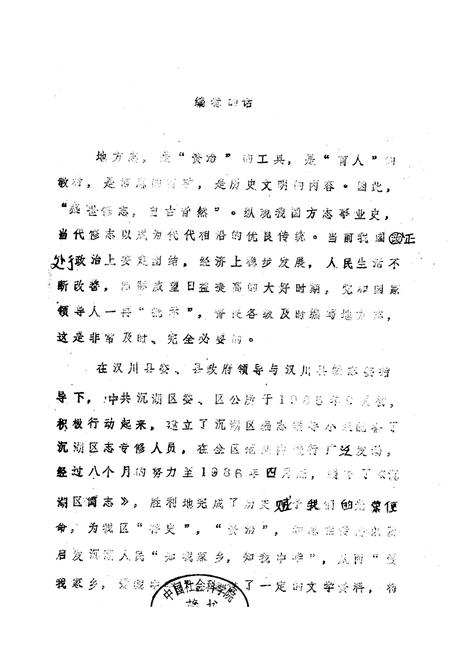 编者的话
地方志，是“资治”的工具，是“育人”的
教材，是信息的，是历史文明的内容。因此，
“盛世修志，自古皆然”。纵观我国方志事业史，
当代修志以成为代代相沿的优良传统。当前我国正
处于政治上安定团结，经济上稳步发展，人民生活不
断改善，国际威望日益提高的大好时期，党和国家
领导人一再“批示”，督促各级及时编写地方志，
这是非常及时、完全必要的。
在汉川县委、县政府领导与汉川县志委指
导下，中共沉湖区委、区公所于1985年月初，
积极行动起来，建立了沉湖区志领导小组配备了
沉湖区志专修人员，在全区范围内进行广泛发动，
经过八个月的努力至1986年四月底，编写了《沉
湖区简志》，胜利地完成了历史赋予我们的光荣使
命，为我区“存史”，“资治”，
启发沉湖人民“知我家乡，知我中华”，从而“爱
我家乡，爱我中华”了一定的文字资料，
中国社会科学院